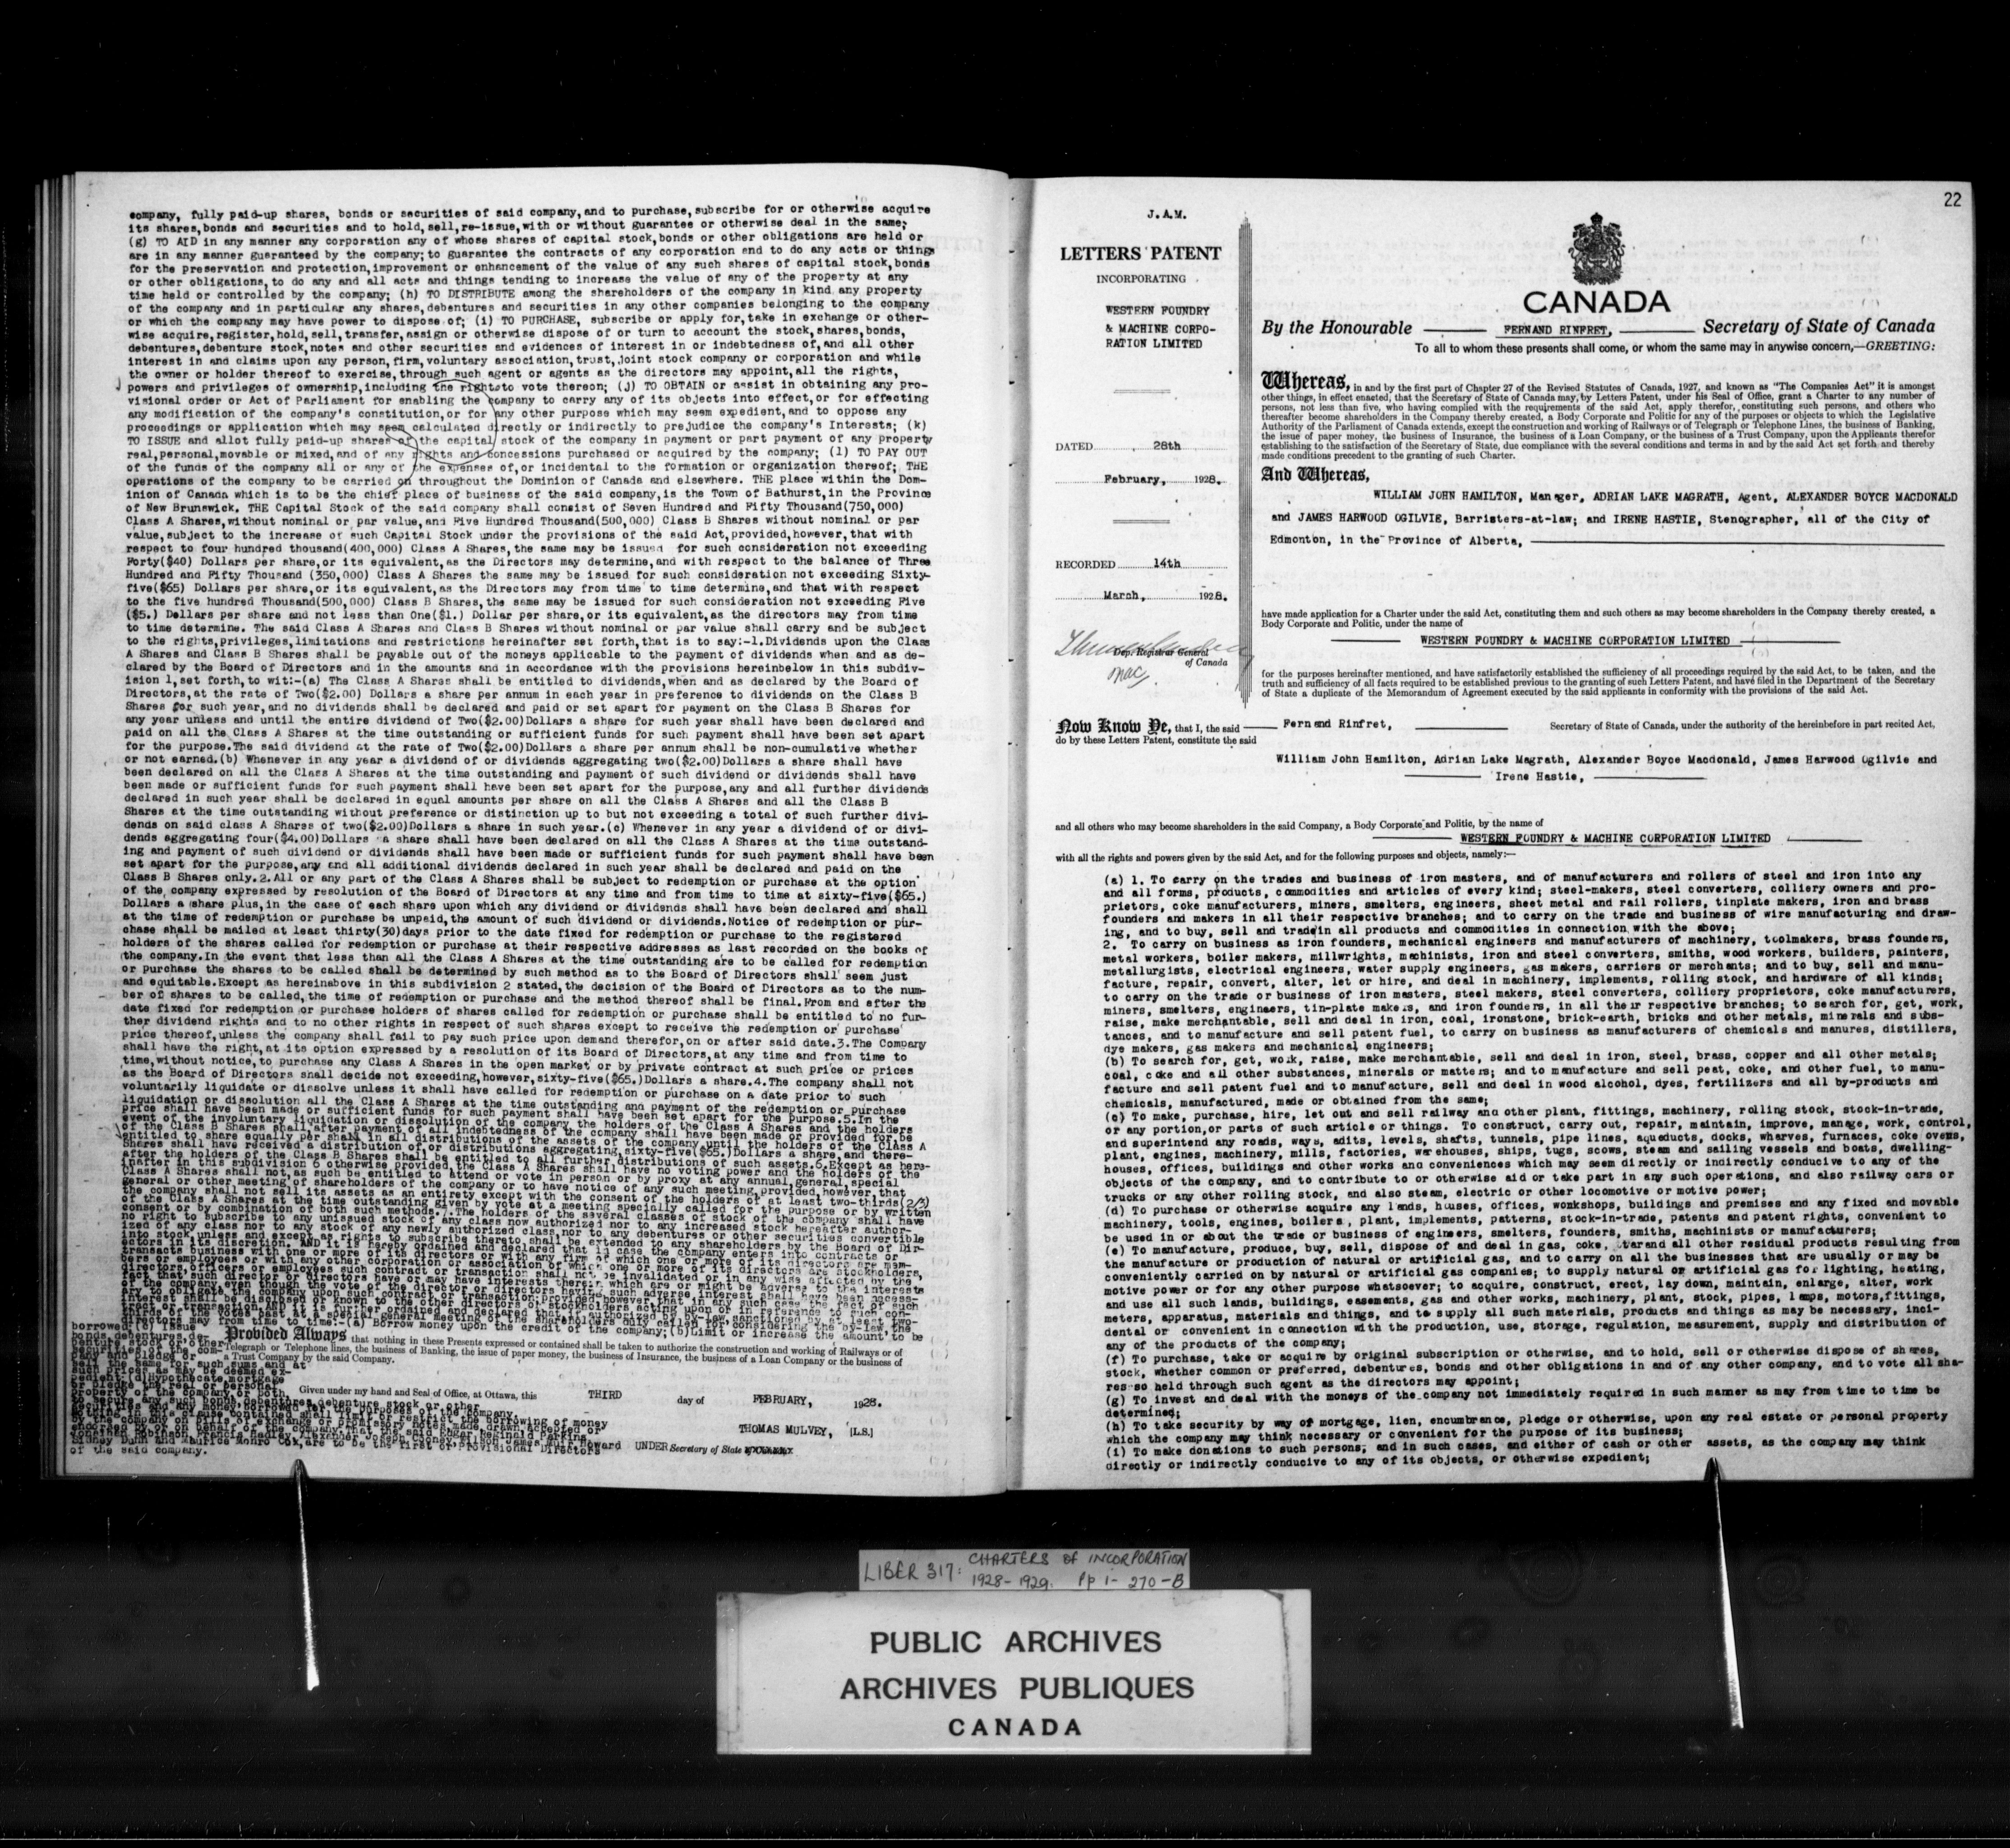 company, fully paid-up shares, bonds or securities of said company,and to purchase,subscribe for or otherwise acquire
its shares,bonds and securities and to hold,sell,re-issue,with or without guarantee or otherwise deal in the same;
(g) TO AID in any manner any corporation any of whose shares of capital stock,bonds or other obligations are held or
are in any manner guaranteed by the company;to guarantee the contracts of any corporation and to do any acts or things
for the preservation and protection,improvement or enhancement of the value of any such shares of capital stock,bonds
or other obligations,to do any and all acts and things tending to increase the value of any of the property at any
time held or controlled by the company; (h) TO DISTRIBUTE among the shareholders of the company in kind any property
of the company and in particular any shares,debentures and securities in any other companies belonging to the company
or which the company may have power to dispose of; (i) TO PURCHASE, subscribe or apply for,take in exchange or other-
wise acquire,register,hold,sell,transfer,assign or otherwise dispose of or turn to account the stock,shares,bonds,
debentures,debenture stock,notes and other securities and evidences of interest in or indebtedness of,and all other
interest in and claims upon any person,firm,voluntary association,trust,joint stock company or corporation and while
the owner or holder thereof to exercise,through such agent or agents as the directors may appoint,all the rights,
powers and privileges of ownership,including the rights to vote thereon; (j) TO OBTAIN or assist in obtaining any pro-
visional order or Act of Parliament for enabling the company to carry any of its objects into effect,or for effecting
any modification of the company's constitution,or for any other purpose which may seem expedient,and to oppose any
proceedings or application which may seem calculated directly or indirectly to prejudice the company's Interests; (k)
TO ISSUE and allot fully paid-up shares of the capital stock of the company in payment or part payment of any property
real,personal,movable or mixed,and of any rights and concessions purchased or acquired by the company; (l) TO PAY OUT
of the funds of the company all or any of the expenses of,or incidental to the formation or organization thereof; THE
operations of the company to be carried on throughout the Dominion of Canada and elsewhere. THE place within the Dom-
inion of Canada which is to be the chief place of business of the said company,is the Town of Bathurst,in the Province
of New Brunswick. THE Capital Stock of the said company shall consist of Seven Hundred and Fifty Thousand(750,000)
Class A Shares,without nominal or par value,and Five Hundred Thousand(500,000) Class B Shares without nominal or par
value,subject to the increase of such Capital Stock under the provisions of the said Act,provided,however,that with
respect to four hundred thousand(400,000) Class A Shares,the same may be issued for such consideration not exceeding
Forty($40) Dollars per share,or its equivalent,as the Directors may determine,and with respect to the balance of Three
Hundred and Fifty Thousand (350,000) Class A Shares the same may be issued for such consideration not exceeding Sixty-
five($65) Dollars per share,or its equivalent,as the Directors may from time to time determine,and that with respect
to the five hundred Thousand(500,000) Class B Shares,the same may be issued for such consideration not exceeding Five
($5.) Dollars per share and not less than One($1.) Dollar per share,or its equivalent,as the directors may from time
to time determine. The said Class A Shares and Class B Shares without nominal or par value shall carry and be subject
to the rights,privileges,limitations and restrictions hereinafter set forth,that is to say:-1.Dividends upon the Class
A Shares and Class B Shares shall be payable out of the moneys applicable to the payment of dividends when and as de-
clared by the Board of Directors and in the amounts and in accordance with the provisions hereinbelow in this subdiv-
ision 1,set forth,to wit:-(a) The Class A Shares shall be entitled to dividends,when and as declared by the Board of
Directors,at the rate of Two($2.00) Dollars a share per annum in each year in preference to dividends on the Class B
Shares for such year,and no dividends shall be declared and paid or set apart for payment on the Class B Shares for
any year unless and until the entire dividend of Two($2.00)Dollars a share for such year shall have been declared and
paid on all the Class A Shares at the time outstanding or sufficient funds for such payment shall have been set apart
for the purpose.The said dividend at the rate of Two($2.00)Dollars a share per annum shall be non-cumulative whether
or not earned.(b) Whenever in any year a dividend of or dividends aggregating two($2.00)Dollars a share shall have
been declared on all the Class A Shares at the time outstanding and payment of such dividend or dividends shall have
been made or sufficient funds for such payment shall have been set apart for the purpose,any and all further dividends
declared in such year shall be declared in equal amounts per share on all the Class A Shares and all the Class B
Shares at the time outstanding without preference or distinction up to but not exceeding a total of such further divi-
dends on said class A Shares of two($2.00)Dollars a share in such year.(c) Whenever in any year a dividend of or divi-
dends aggregating four($4.00)Dollars a share shall have been declared on all the Class A Shares at the time outstand-
ing and payment of such dividend or dividends shall have been made or sufficient funds for such payment shall have been
set apart for the purpose,any and all additional dividends declared in such year shall be declared and paid on the
Class B Shares only.2.All or any part of the Class A Shares shall be subject to redemption or purchase at the option
of the company expressed by resolution of the Board of Directors at any time and from time to time at sixty-five($65.)
Dollars a share plus,in the case of each share upon which any dividend or dividends shall have been declared and shall
at the time of redemption or purchase be unpaid,the amount of such dividend or dividends.Notice of redemption or pur-
chase shall be mailed at least thirty(30)days prior to the date fixed for redemption or purchase to the registered
holders of the shares called for redemption or purchase at their respective addresses as last recorded on the books of
the company.In the event that less than all the Class A Shares at the time outstanding are to be called for redemption
or purchase the shares to be called shall be determined by such method as to the Board of Directors shall seem just
and equitable.Except as hereinabove in this subdivision 2 stated,the decision of the Board of Directors as to the num-
ber of shares to be called,the time of redemption or purchase and the method thereof shall be final.From and after the
date fixed for redemption or purchase holders of shares called for redemption or purchase shall be entitled to no fur-
ther dividend rights and to no other rights in respect of such shares except to receive the redemption or purchase
price thereof,unless the company shall fail to pay such price upon demand therefor,on or after said date.3.The Company
shall have the right,at its option expressed by a resolution of its Board of Directors,at any time and from time to
time,without notice,to purchase any Class A Shares in the open market or by private contract at such price or prices
as the Board of Directors shall decide not exceeding,however,sixty-five($65.)Dollars a share.4.The company shall not
voluntarily liquidate or dissolve unless it shall have called for redemption or purchase on a date prior to such
liquidation or dissolution all the Class A Shares at the time outstanding and payment of the redemption or purchase
price shall have been made or sufficient funds for such payment shall have been set apart for the purpose.5.In the
event of the involuntary liquidation or dissolution of the company the holders of the Class A Shares and the holders
of the Class B Shares shall,after payment of all indebtedness of the company shall have been made or provided for,be
entitled to share equally per share in all distributions of the assets of the company until the holders of the Class A
Shares shall have received a distribution of,or distributions aggregating,sixty-five($65.)Dollars a share,and there-
after the holders of the Class B Shares shall be entitled to all further distributions of such assets.6.Except as here-
inafter in this subdivision 6 otherwise provided,the Class A Shares shall have no voting power and the holders of the
Class A Shares shall not,as such,be entitled to attend or vote in person or by proxy at any annual,general,special
general or other meeting of shareholders of the company or to have notice of any such meeting,provided,however,that
the company shall not sell its assets as an entirety except with the consent of the holders of at least two-thirds(2/3)
of the Class A Shares at the time outstanding given by vote at a meeting specially called for the purpose or by written
consent or by combination of both such methods.7.The holders of the several classes of stock of the company shall have
no right to subscribe to any unissued stock of any class now authorized nor to any increased stock hereafter author-
ized of any class nor to any stock of any newly authorized class,nor to any debentures or other securities convertible
into stock,unless and except as rights to subscribe thereto shall be extended to any shareholders by the Board of Dir-
ectors in its discretion. AND it is hereby ordained and declared that in case the company enters into contracts or
transacts business with one or more of its directors or with any firm of which one or more of its directors are mem-
bers or employees or with any other corporation or association of which one or more of its directors are stockholders,
directors,officers or employees such contract or transaction shall not be invalidated or in any wise affected by the
fact that such director or directors have or may have interests therein which are or might be adverse to the interests
of the company,even though the vote of the director or directors having such adverse interest shall have been necess-
ary to obligate the company upon such contract or transaction;provided,however,that in any such case the fact of such
interest shall be disclosed or known to the other directors or stockholders acting upon or in reference to such con-
tract or transaction.AND it is further ordained and declared that,if authorized by by-law,sanctioned by at least two-
thirds of the votes cast at a special general meeting of the shareholders duly called for considering the by-law,the
directors may from time to time:-(a) Borrow money upon the credit of the company;(b)Limit or increase the amount to be
borrowed;(c) Issue
bonds,debentures,de-
benture stock or other
securities of the com-
pany and pledge or
sell the same for such sums and at
such prices as may be deemed ex-
pedient;(d)Hypothecate,mortgage
or pledge the real or personal
property of the company,or both,
to secure any such bonds,debentures,debenture stock or other
securities and any money borrowed for the purposes of the company.
Nothing in this clause contained shall limit or restrict the borrowing of money
by the company on bills of exchange or promissory notes made,drawn,accepted or
endorsed by or on behalf of the company.That the said Edgar Reginald Parkins,
Jonathan Robinson,Francis Hadley,Alexander Joseph Cooney, James Muir Howard
Sidney Dunn and Maurice Monro Cox,are to be the first or Provisional Directors
of the said company.
Provided Always that nothing in these Presents expressed or contained shall be taken to authorize the construction and working of Railways or of
Telegraph or Telephone lines, the business of Banking, the issue of paper money, the business of Insurance, the business of a Loan Company or the business of
a Trust Company by the said Company.
Given under my hand and Seal of Office, at Ottawa, this THIRD day of FEBRUARY, 1928.
THOMAS MULVEY, [L.S.]
UNDER Secretary of State
22
J.A.M.
LETTERS PATENT
INCORPORATING
WESTERN FOUNDRY
& MACHINE CORPO-
RATION LIMITED
DATED 28th
February, 1928.
RECORDED 14th
March, 1928.
Dep. Registrar General
of Canada
mac
CANADA
By the Honourable FERNAND RINFRET, Secretary of State of Canada
To all to whom these presents shall come, or whom the same may in anywise concern,—GREETING:
Whereas, in and by the first part of Chapter 27 of the Revised Statutes of Canada, 1927, and known as "The Companies Act" it is amongst
other things, in effect enacted, that the Secretary of State of Canada may, by Letters Patent, under his Seal of Office, grant a Charter to any number of
persons, not less than five, who having complied with the requirements of the said Act, apply therefor, constituting such persons, and others who
thereafter become shareholders in the Company thereby created, a Body Corporate and Politic for any of the purposes or objects to which the Legislative
Authority of the Parliament of Canada extends, except the construction and working of Railways or of Telegraph or Telephone Lines, the business of Banking,
the issue of paper money, the business of Insurance, the business of a Loan Company, or the business of a Trust Company, upon the Applicants therefor
establishing to the satisfaction of the Secretary of State, due compliance with the several conditions and terms in and by the said Act set forth and thereby
made conditions precedent to the granting of such Charter.
And Whereas,
WILLIAM JOHN HAMILTON, Manager, ADRIAN LAKE MAGRATH, Agent, ALEXANDER BOYCE MACDONALD
and JAMES HARWOOD OGILVIE, Barristers-at-law; and IRENE HASTIE, Stenographer, all of the City of
Edmonton, in the Province of Alberta,
have made application for a Charter under the said Act, constituting them and such others as may become shareholders in the Company thereby created, a
Body Corporate and Politic, under the name of
WESTERN FOUNDRY & MACHINE CORPORATION LIMITED
for the purposes hereinafter mentioned, and have satisfactorily established the sufficiency of all proceedings required by the said Act, to be taken, and the
truth and sufficiency of all facts required to be established previous to the granting of such Letters Patent, and have filed in the Department of the Secretary
of State a duplicate of the Memorandum of Agreement executed by the said applicants in conformity with the provisions of the said Act.
Now Know Ye, that I, the said Fernand Rinfret, Secretary of State of Canada, under the authority of the hereinbefore in part recited Act,
do by these Letters Patent, constitute the said
William John Hamilton, Adrian Lake Magrath, Alexander Boyce Macdonald, James Harwood Ogilvie and
Irene Hastie,
and all others who may become shareholders in the said Company, a Body Corporate and Politic, by the name of
WESTERN FOUNDRY & MACHINE CORPORATION LIMITED
with all the rights and powers given by the said Act, and for the following purposes and objects, namely:—
(a) 1. To carry on the trades and business of iron masters, and of manufacturers and rollers of steel and iron into any
and all forms, products, commodities and articles of every kind; steel-makers, steel converters, colliery owners and pro-
prietors, coke manufacturers, miners, smelters, engineers, sheet metal and rail rollers, tinplate makers, iron and brass
founders and makers in all their respective branches; and to carry on the trade and business of wire manufacturing and draw-
ing, and to buy, sell and trade in all products and commodities in connection with the above;
2. To carry on business as iron founders, mechanical engineers and manufacturers of machinery, toolmakers, brass founders,
metal workers, boiler makers, millwrights, machinists, iron and steel converters, smiths, wood workers, builders, painters,
metallurgists, electrical engineers, water supply engineers, gas makers, carriers or merchants; and to buy, sell and manu-
facture, repair, convert, alter, let or hire, and deal in machinery, implements, rolling stock, and hardware of all kinds;
to carry on the trade or business of iron masters, steel makers, steel converters, colliery proprietors, coke manufacturers,
miners, smelters, engineers, tin-plate makers, and iron founders, in all their respective branches; to search for, get, work,
raise, make merchantable, sell and deal in iron, coal, ironstone, brick-earth, bricks and other metals, minerals and subs-
tances, and to manufacture and sell patent fuel, to carry on business as manufacturers of chemicals and manures, distillers,
dye makers, gas makers and mechanical engineers;
(b) To search for, get, work, raise, make merchantable, sell and deal in iron, steel, brass, copper and all other metals;
coal, coke and all other substances, minerals or matters; and to manufacture and sell peat, coke, and other fuel, to manu-
facture and sell patent fuel and to manufacture, sell and deal in wood alcohol, dyes, fertilizers and all by-products and
chemicals, manufactured, made or obtained from the same;
(c) To make, purchase, hire, let out and sell railway and other plant, fittings, machinery, rolling stock, stock-in-trade,
or any portion,or parts of such article or things. To construct, carry out, repair, maintain, improve, manage, work, control,
and superintend any roads, ways, adits, levels, shafts, tunnels, pipe lines, aqueducts, docks, wharves, furnaces, coke ovens,
plant, engines, machinery, mills, factories, warehouses, ships, tugs, scows, steam and sailing vessels and boats, dwelling-
houses, offices, buildings and other works and conveniences which may seem directly or indirectly conducive to any of the
objects of the company, and to contribute to or otherwise aid or take part in any such operations, and also railway cars or
trucks or any other rolling stock, and also steam, electric or other locomotive or motive power;
(d) To purchase or otherwise acquire any lands, houses, offices, workshops, buildings and premises and any fixed and movable
machinery, tools, engines, boilers, plant, implements, patterns, stock-in-trade, patents and patent rights, convenient to
be used in or about the trade or business of engineers, smelters, founders, smiths, machinists or manufacturers;
(e) To manufacture, produce, buy, sell, dispose of and deal in gas, coke, tar and all other residual products resulting from
the manufacture or production of natural or artificial gas, and to carry on all the businesses that are usually or may be
conveniently carried on by natural or artificial gas companies; to supply natural or artificial gas for lighting, heating,
motive power or for any other purpose whatsoever; to acquire, construct, erect, lay down, maintain, enlarge, alter, work
and use all such lands, buildings, easements, gas and other works, machinery, plant, stock, pipes, lamps, motors,fittings,
meters, apparatus, materials and things, and to supply all such materials, products and things as may be necessary, inci-
dental or convenient in connection with the production, use, storage, regulation, measurement, supply and distribution of
any of the products of the company;
(f) To purchase, take or acquire by original subscription or otherwise, and to hold, sell or otherwise dispose of shares,
stock, whether common or preferred, debentures, bonds and other obligations in and of any other company, and to vote all sha-
res so held through such agent as the directors may appoint;
(g) To invest and deal with the moneys of the company not immediately required in such manner as may from time to time be
determined;
(h) To take security by way of mortgage, lien, encumbrance, pledge or otherwise, upon any real estate or personal property
which the company may think necessary or convenient for the purpose of its business;
(i) To make donations to such persons, and in such cases, and either of cash or other assets, as the company may think
directly or indirectly conducive to any of its objects, or otherwise expedient;
LIBER 317: CHARTERS of INCORPORATION
1928-1929. Pp 1- 270-B
PUBLIC ARCHIVES
ARCHIVES PUBLIQUES
CANADA